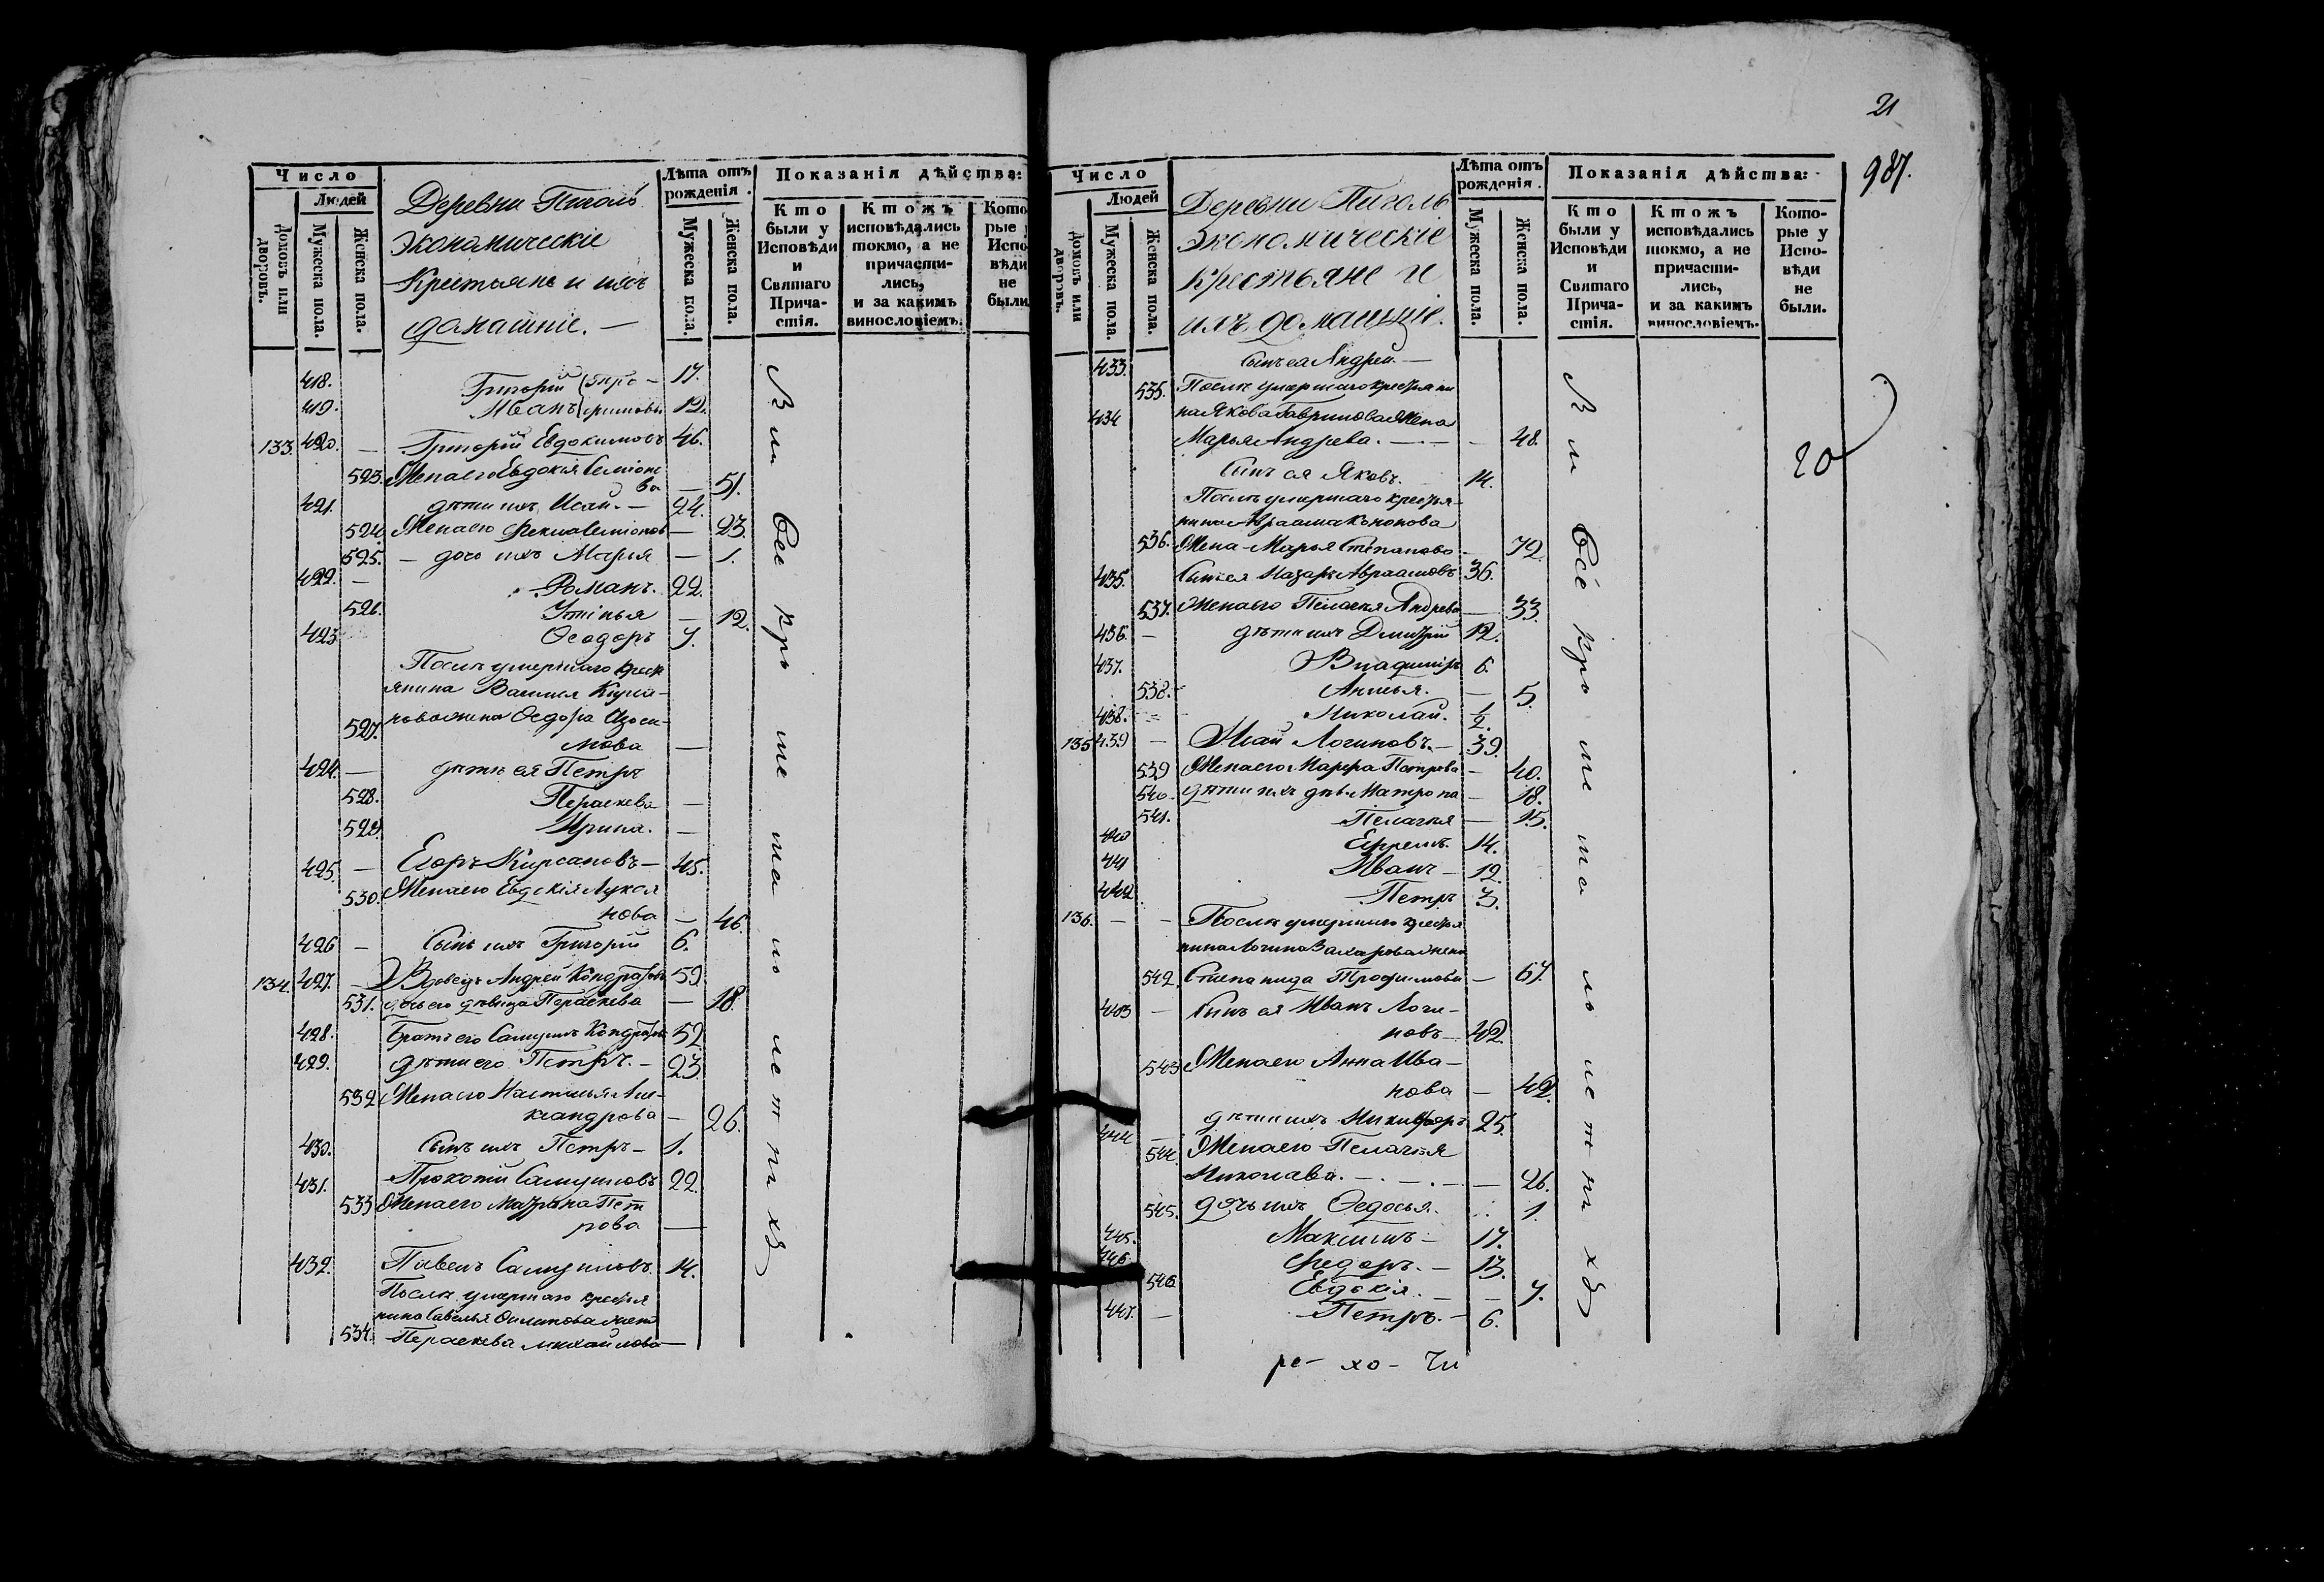 Число
Людей
Домовъ или дворовъ.
Мужеска пола.
Женска пола.
Деревни
Экономическіе
Крестьяне и ихъ
домашніе. —
Лѣта отъ рожденія.
Мужеска пола.
Женска пола.
Показанія дѣйства:
Кто были у Исповѣди и Святаго Причастія.
Ктожъ исповѣдались токмо, а не причастились, и за какимъ винословіемъ.
Кото
рые
Испо
вѣди
не
были
418. Григорій 17.
419. Иванъ 12.
133. 420. — Григорій Евдокимовъ 46.
523. Жена его Евдокія Семіоно
ва — 51.
421. дѣти ихъ Исай. — 24.
524. Жена его Фекла Семіонов — 23.
525. — дочь ихъ Марья — 1.
422. — Романъ. 22.
526. Устинья — 12.
423. Ѳеодоръ 7.
Послѣ умершаго крест
янина Василья
527. нова жена Ѳедора Изоси-
мова —
424. — дѣти ея Петръ
528. Пераскева —
529. Ирина. —
425. — Егоръ Кирсановъ — 45.
530. Жена его Евдокія Лукоя
нова — 46.
426 — Сынъ ихъ Григорій 6.
134. 427. — Вдовецъ Андрей Кондратовъ 59
531. дочь его дѣвица Пераскева — 18.
428. Братъ его Самуилъ Кондратов 52
429. дѣти его Петръ. — 23.
532 Жена его Настасья Але-
ксандрова — 26.
430. Сынъ ихъ Петръ — 1.
431. Прокопій Самуиловъ 22.
533 Жена его Матрона Пет
рова —
432. Павелъ Самуиловъ. 14.
Послѣ умершаго крестья
нина Савелья Филипова жена
534. Пераскева Михайлова —
Всѣ
21
987.
20
Число
Людей
Домовъ или дворовъ.
Мужеска пола
Женска пола.
Деревни Пиголь
Экономическіе
Крестьяне и
ихъ домашніе.
Лѣта отъ рожденія.
Мужеска пола.
Женска пола.
Показанія дѣйства:
Кто были у Исповѣди и Святаго Причастія.
Ктожъ исповѣдались токмо, а не причастились, и за какимъ винословіемъ.
Которые у Исповѣди не были.
433. Сынъ ея Андрей. —
535. Послѣ умершаго крестьяни
434 на Якова Гаврилова жена
Марья Андрева. — - 48.
Сынъ ея Яковъ. 14.
Послѣ умершаго крестья-
нина Авраама Кононова
536. Жена Марья Степанова - 72
435. Сынъ ея Назаръ Авраамовъ 36.
537. Жена его Пелагея Андрева — 33.
436. — дѣти ихъ Дмитрій 12.
437. Владимиръ 6.
538. Анисья. — 5.
438. Николай. 1/2.
135 439 — Исай Логиновъ. — 39.
539 Жена его Марфа Петрова — 40.
540. дѣти ихъ дѣв. Матрона — 18.
541. Пелагея — 15.
440 Ефремъ. 14.
441 Иванъ — 12.
442 Петръ 3.
136. — - Послѣ умершаго крестья
нина Логина Захарова жена
542 Степанида Трофимова — 67.
443 — Сынъ ея Иванъ Логи-
новъ 42.
543 Жена его Анна Ива-
нова — 42.
444 дѣти ихъ Никифоръ 25.
544 Жена его Пелагея
Николаева. — 26.
545. дочь ихъ Ѳедосья. 1.
445. Максимъ — 17.
446. Федоръ. — 13.
546 Евдокія. — 7.
447. — Петръ. — 6.
Всѣ